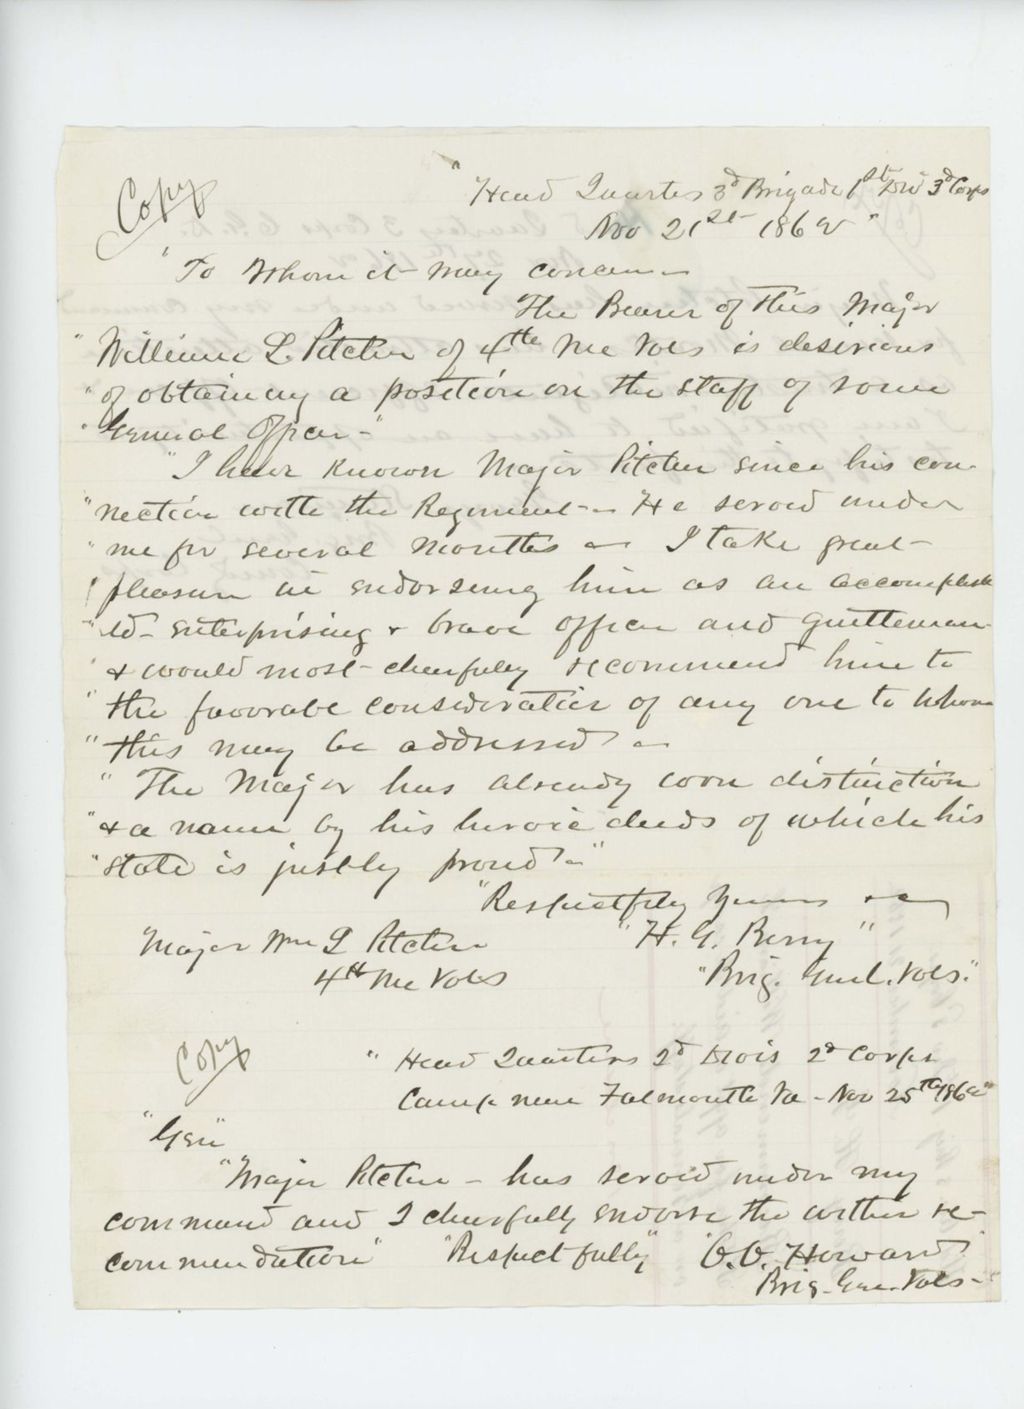 Copy
"Head Quarters 3d Brigade 1st Div 3d Corps
Nov 21st 1862"
"To Whom it may concern
The Bearer of this Major
"William L. Pitcher of 4th Me Vols is desirious
"of obtaining a position on the staff of some
"General Officer"
"I have known Major Pitcher since his con-
"nection with the Regiment - He served under
"me for several months - I take great
"pleasure in endorsing him as an accomplish
"ed - enterprising & brave officer and gentleman
"& would most cheerfully recommend him to
"the favorable consideration of any one to whom
"this may be addressed -
"The Major has already won distinction
"& a name by his heroic deeds of which his
"state is justly proud -"
"Respectfully Yours
Major Wm L Pitcher "H. G. Berry"
4th Me Vols "Brig. Genl. Vols."
Copy
"Head Quarters 2d Divis 2d Corps
Camp near Falmouth Va - Nov 25th 1862"
"Gen"
"Major Pitcher - has served under my
command and I cheerfully endorse the within re-
commendation" "Respectfully" "O.O. Howard
Brig. Gen. Vols-"